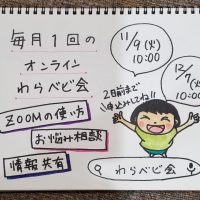 毎月1回の
オンライン
わらべビ会
ZOOMの使い方
お悩み相談
情報共有
11/9(火)
10:00
12/7(火)
10:00
2日前まで
申込みしてね!!
わらべビ会